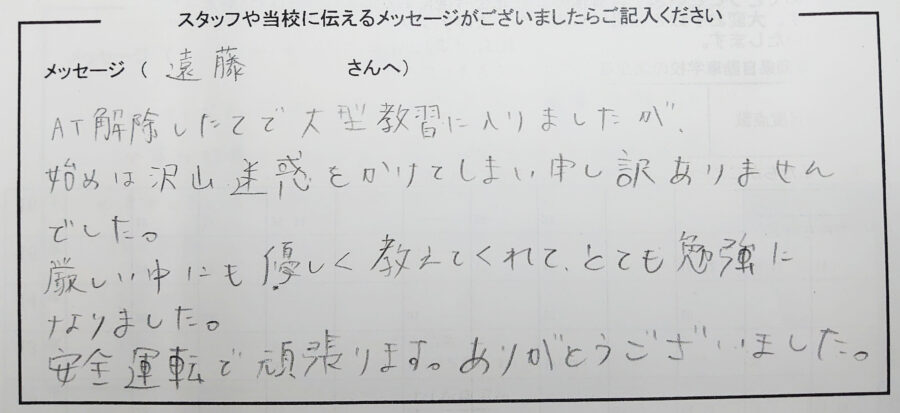 スタッフや当校に伝えるメッセージがございましたらご記入ください
メッセージ（ 遠藤 さんへ）
AT解除したてで大型教習に入りましたが、
始めは沢山迷惑をかけてしまい申し訳ありません
でした。
厳しい中にも優しく教えてくれて、とても勉強に
なりました。
安全運転で頑張ります。ありがとうございました。